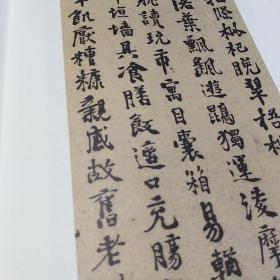 條枇杷晚翠梧桐
落葉飄颻遊鵾獨運凌摩
耽讀玩市寓目囊箱易輶
垣墙具飡膳飯適口充腸
飢厭糟糠親戚故舊老